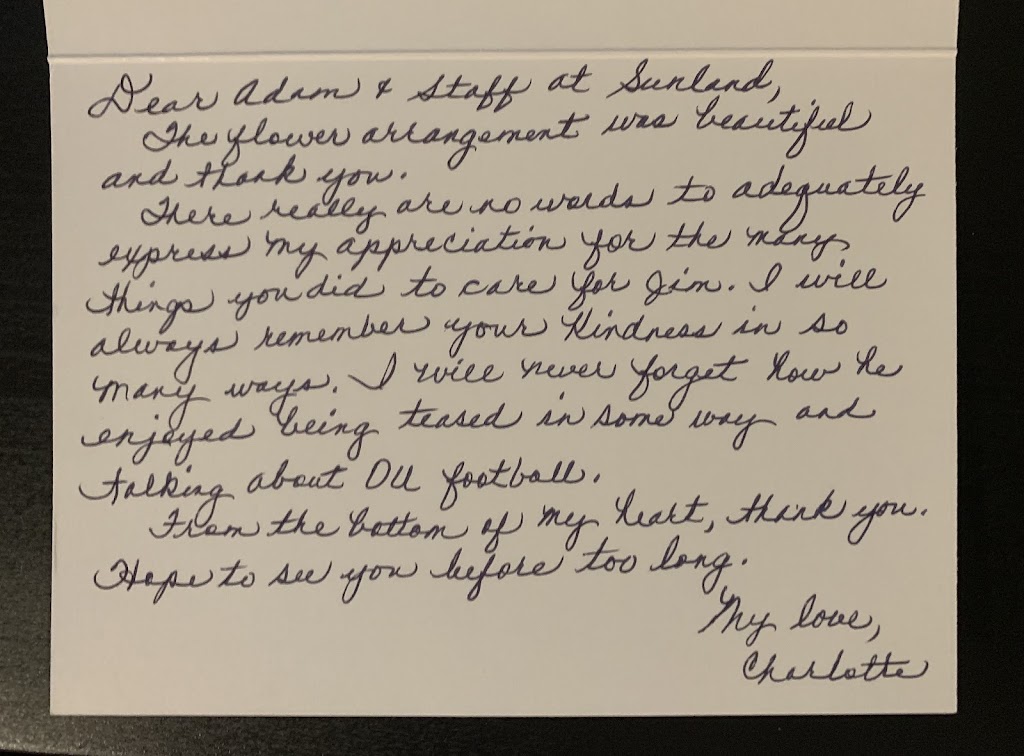 Dear Adam & Staff at Sunland,
The flower arrangement was beautiful
and thank you.
There really are no words to adequately
express my appreciation for the many
things you did to care for Jim. I will
always remember your kindness in so
many ways. I will never forget how he
enjoyed being teased in some way and
talking about OU football.
From the bottom of my heart, thank you.
Hope to see you before too long.
My love,
Charlotte